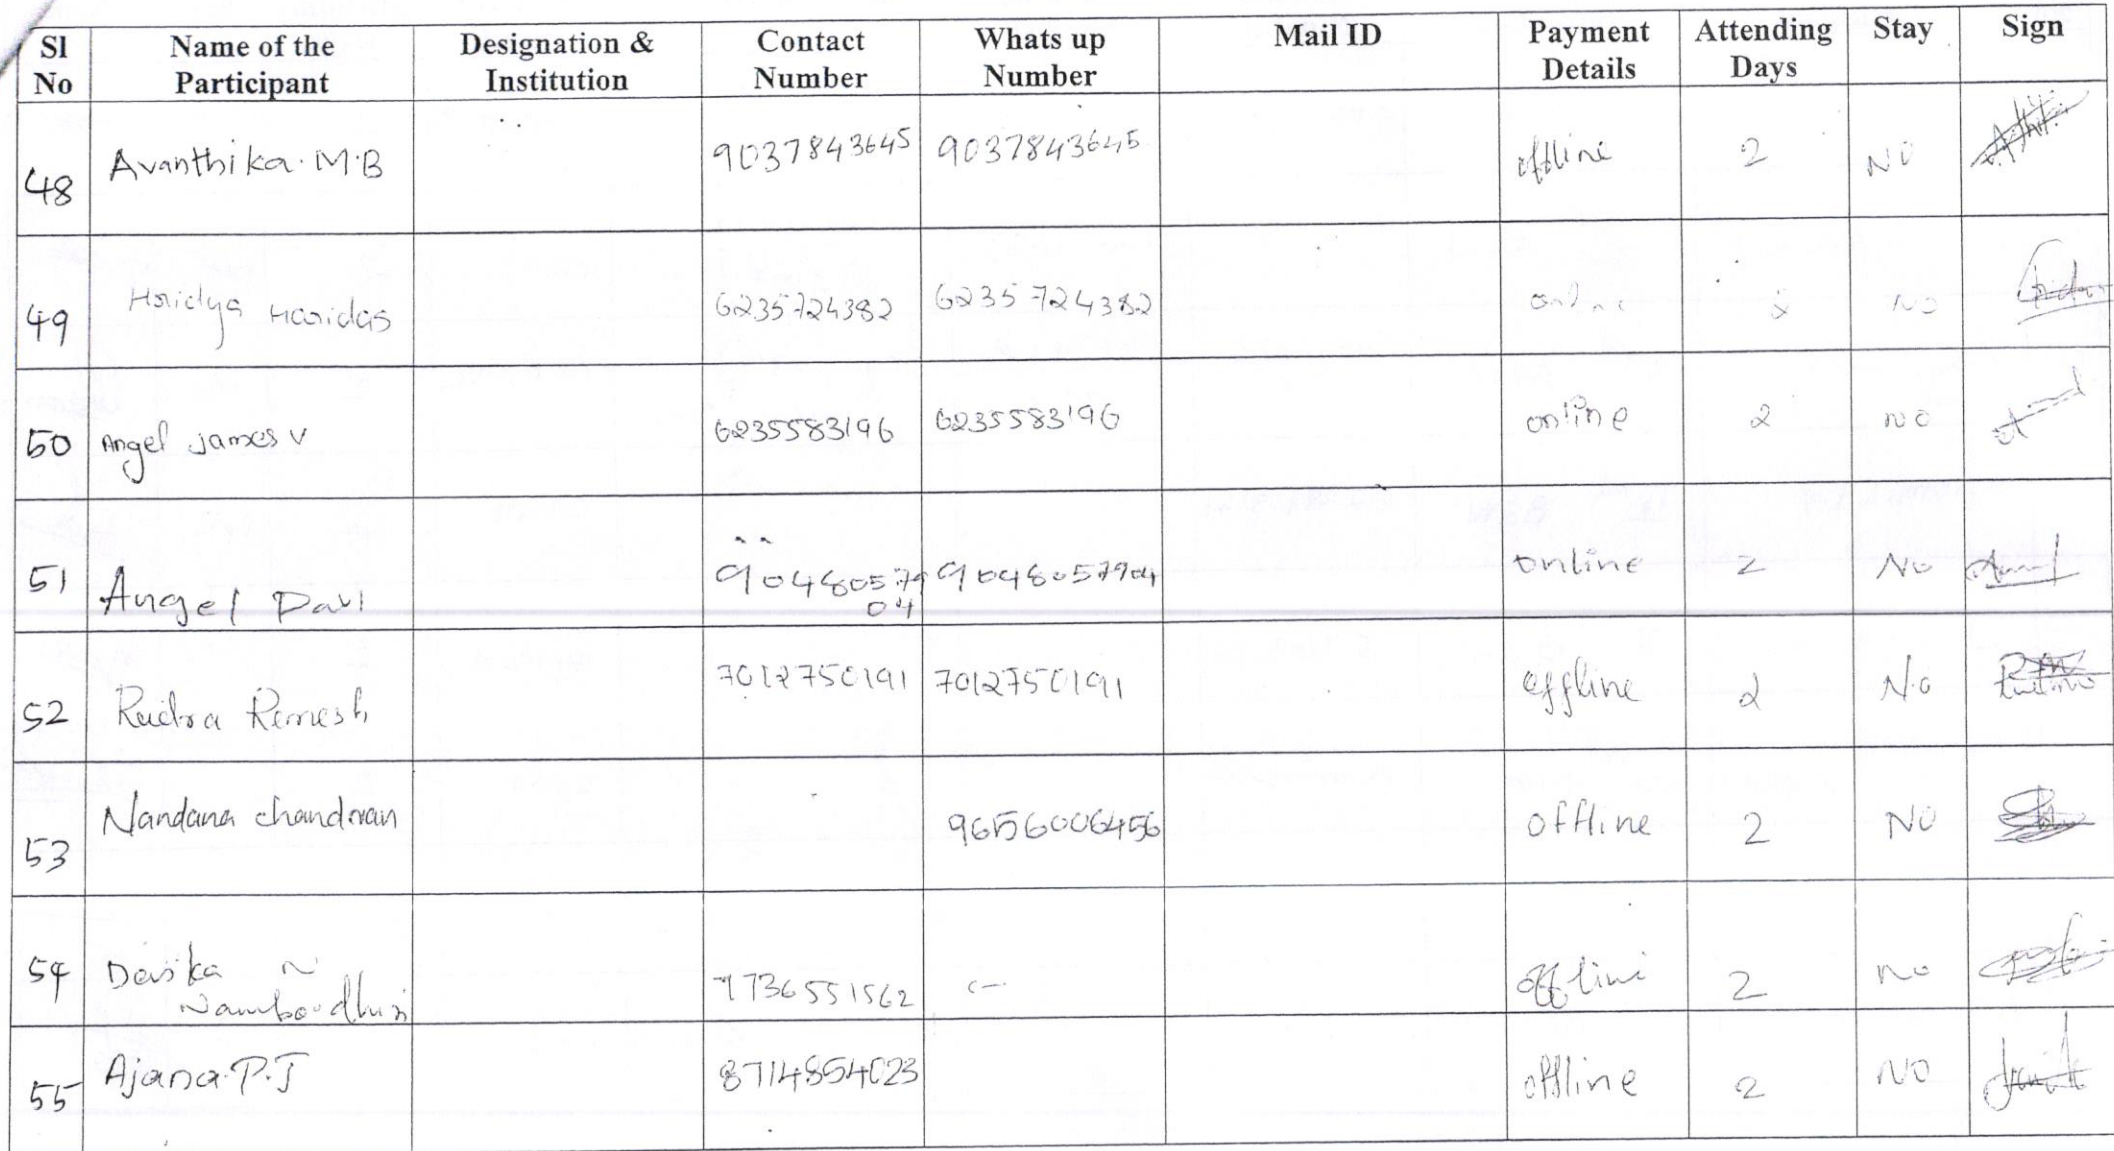 Sl No Name of the Participant Designation & Institution Contact Number Whats up Number Mail ID Payment Details Attending Days Stay Sign
48 Avanthika. M.B 9037843645 9037843645 offline 2 NO
49 Hridya Haridas 6235724382 6235724382 online 2 No
50 Angel james V 6235583196 6235583196 online 2 no
51 Angel Paul 9048057904 9048057904 online 2 No
52 Rudra Remesh 7012750191 7012750191 offline 2 No
53 Nandana chandran 9656006456 offline 2 NO
54 Devika N Namboodhiri 9736551562 offline 2 no
55 Ajana. P.J 8714854023 offline 2 NO